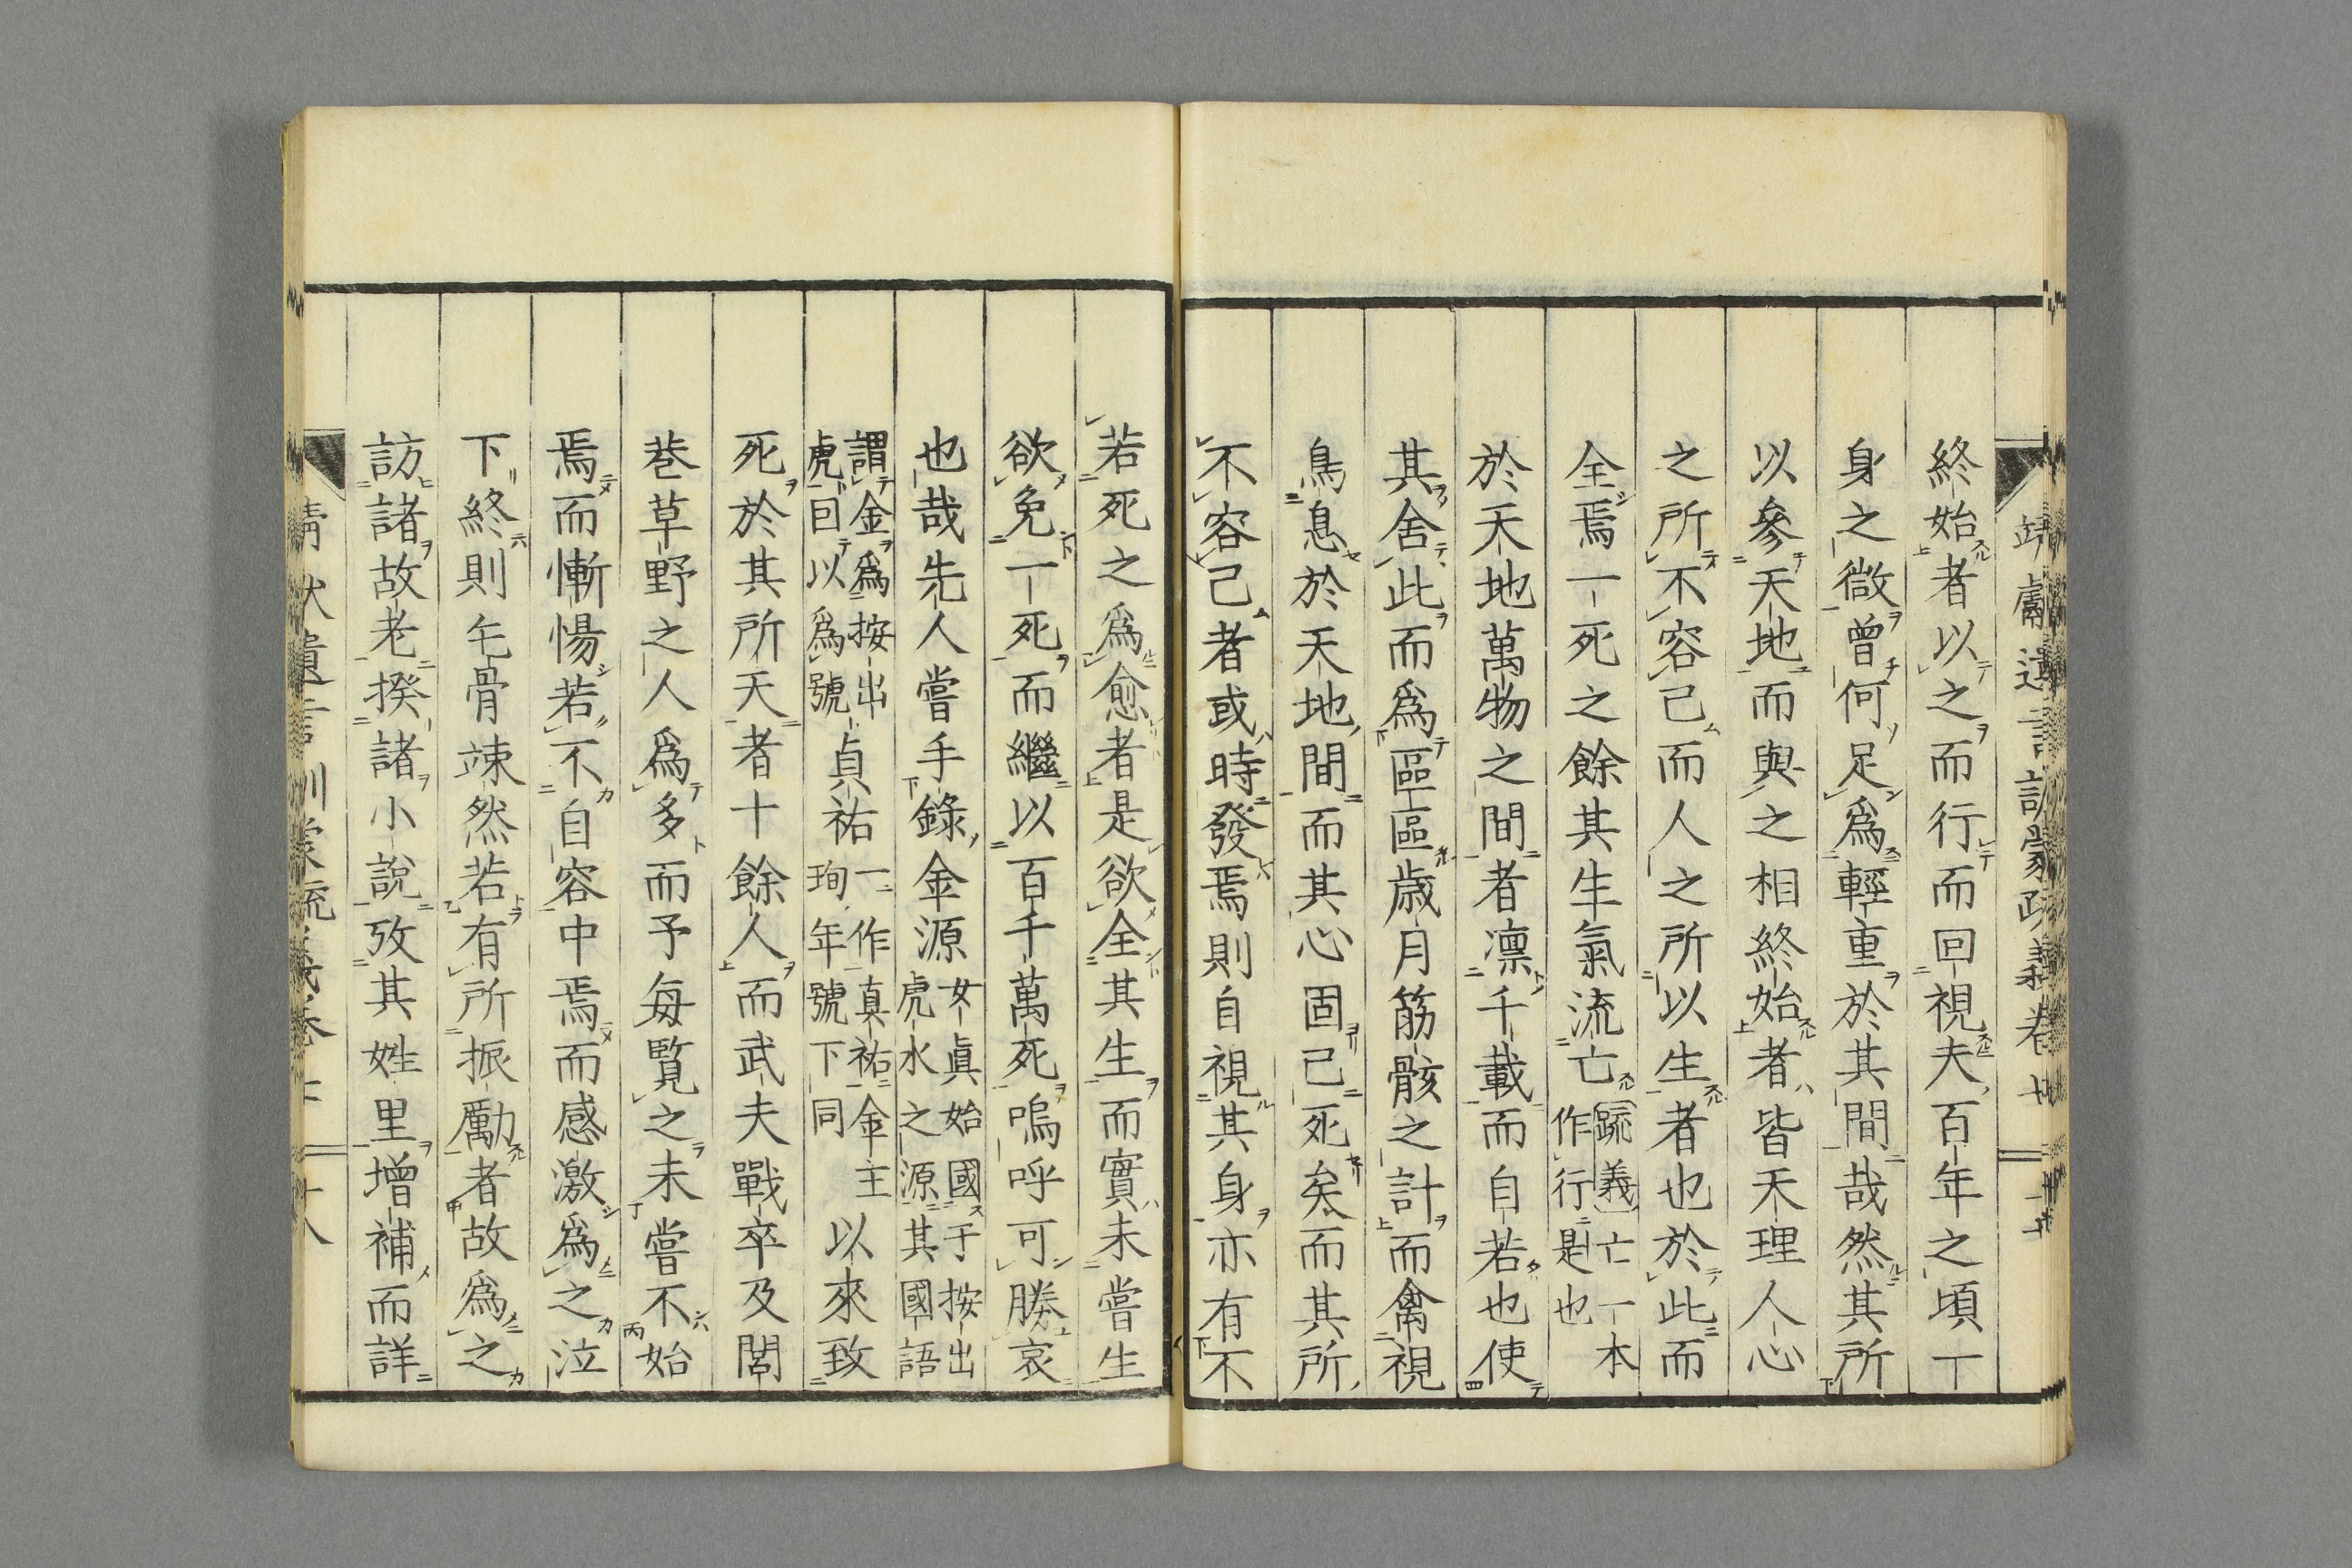 終始者以之而行而回視夫百年之頃一
身之微曾何足爲輕重於其間哉然其所
以參天地而與之相終始者皆天理人心
之所不容己而人之所以生者也於此而
全焉一死之餘其生氣流亡疏義亡一本作行是也
於天地萬物之間者凛千載而自若也使
其舍此而爲區區歳月筋骸之計而禽視
鳥息於天地間而其心固己死矣而其所
不容己者或時發焉則自視其身亦有不
若死之爲愈者是欲全其生而實未嘗生
欲免一死而繼以百千萬死嗚呼可勝哀
也哉先人嘗手錄金源女眞始國于按出虎水之源其國語
謂金爲按出虎回以爲號貞祐一作真祐金主珣年號下同以來致
死於其所天者十餘人而武夫戰卒及閭
巷草野之人爲多而予每覧之未嘗不始
焉而慚惕若不自容中焉而感激爲之泣
下終則毛骨竦然若有所振勵者故爲之
訪諸故老揆諸小說攷其姓里增補而詳